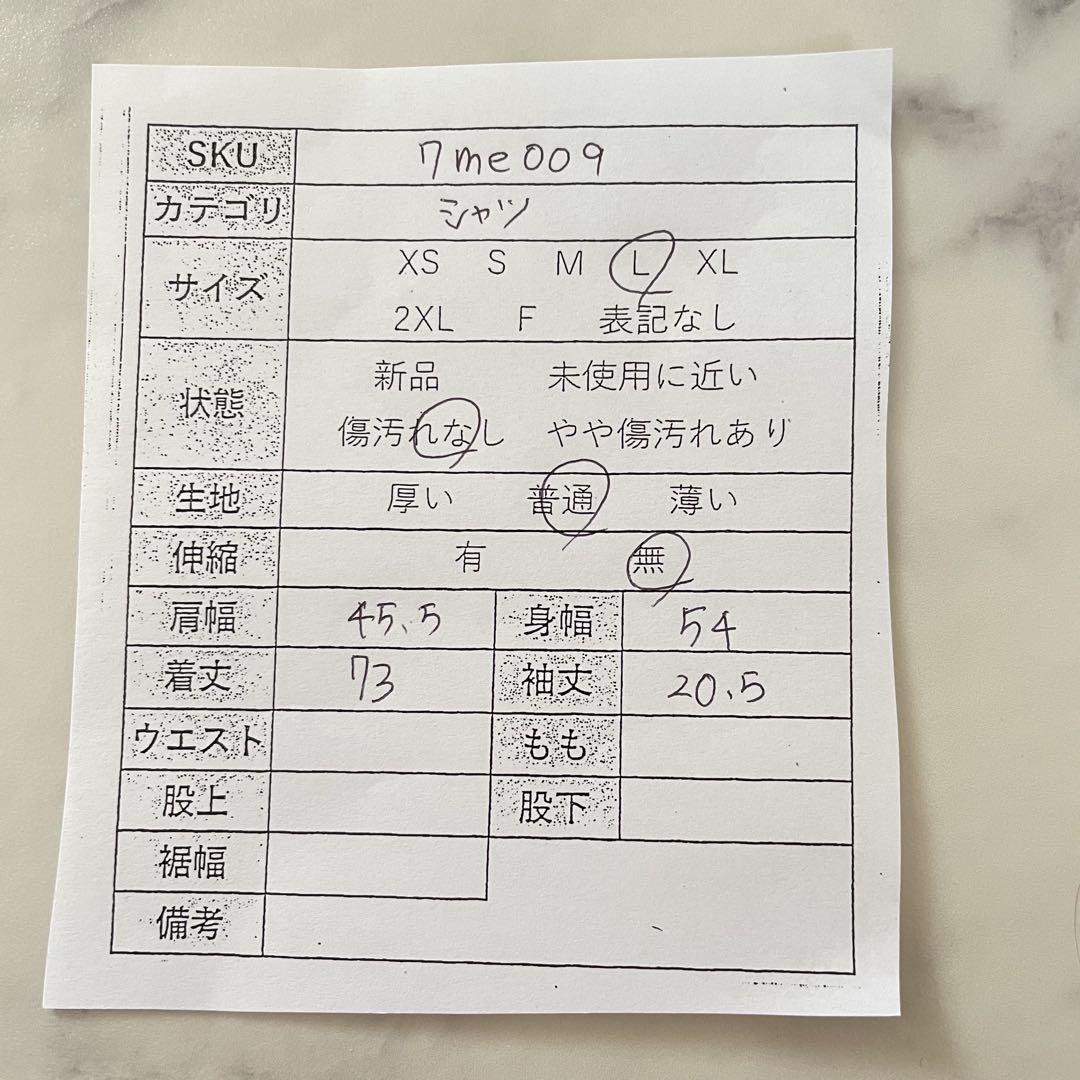 SKU 7me009
カテゴリ シャツ
サイズ XS S M L XL
2XL F 表記なし
状態 新品 未使用に近い
傷汚れなし やや傷汚れあり
生地 厚い 普通 薄い
伸縮 有 無
肩幅 45.5 身幅 54
着丈 73 袖丈 20.5
ウエスト もも
股上 股下
裾幅
備考